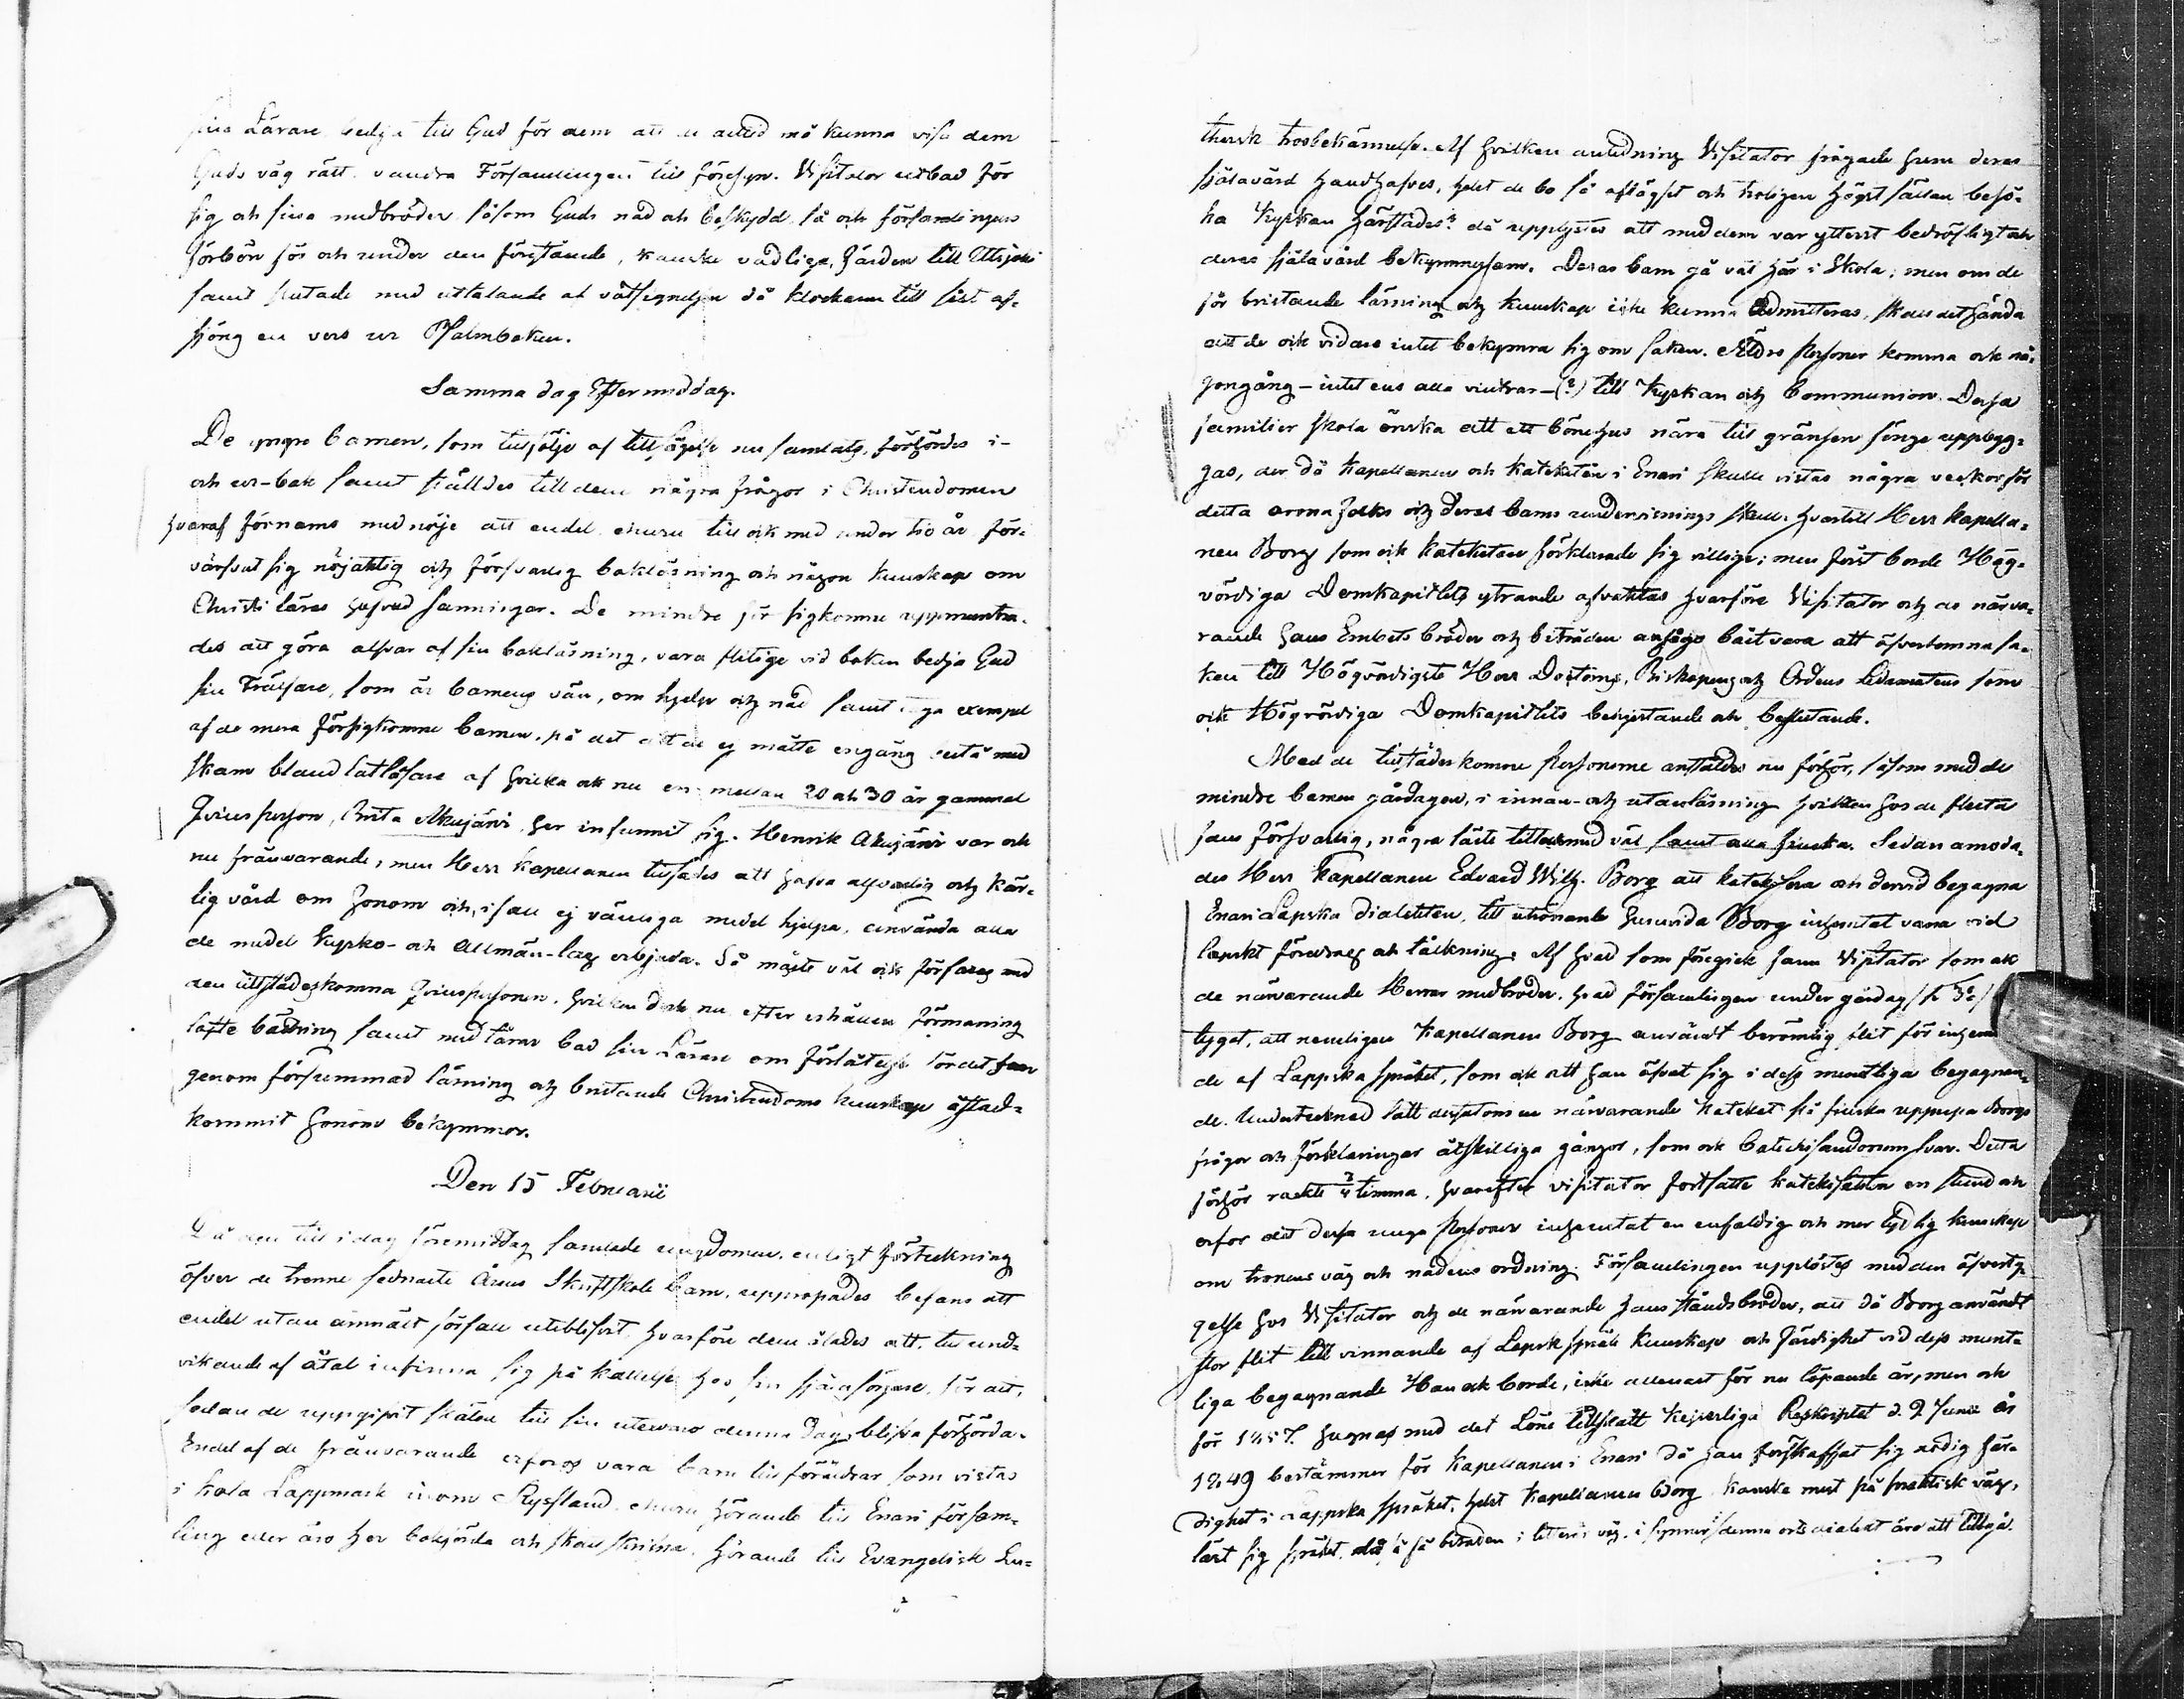 sina Lärare bedja till Gud för dem att de alltid må kunna visa dem
Guds väg rätt vandra Församlingen till föresyn. Visitator utbad för
sig och sina medbröder såsom Guds nåd och beskydd så och församlingens
förbön för och under den förestående, kanske vådliga, färden till Utsjoki
samt slutade med uttalande af välsignelsen då klockaren till sist af-
sjöng en vers ur Psalmboken.
Samma dag Eftermiddag.
De yngre barnen, som till följe af tillsägelse nu samlats, förhördes i-
och ur-bok samt ställdes till dem några frågor i Christendomen
hvaraf förnams med nöje att endel ehuru till och med under tio år för-
värfvat sig nöjaktig och försvarlig bokläsning och någon kunskap om
Christi läras hufvud sanningar. De mindre för sig komne uppmuntra-
des att göra alfvar af sin bokläsning, vara flitige vid boken bedja Gud
sin Frälsare, som är barnens vän, om hjelp och nåd samt taga exempel
af de mera försigkomne barnen, på det att de ej måtte engång bestå med
skam bland lat läsare af hvilka ock nu en mellan 20 och 30 år gammal
Qvinsperson, Brita Akujärvi, här infunnit sig. Henrik Akujärvi var och
nu frånvarande; men Herr Kapellanen tillsades att hafva alfvarlig och kär-
lig vård om honom och, ifall ej vänliga medel hjelpa, använda alla
de medel Kyrko- och Allmän-lag erbjuda. Så måste väl ock förfaras med
den tillstädeskomna Qvinspersonen, hvilken dock nu efter erhållen förmaning
lofte bättring samt med tårar bad sin Lärare om förlåtelse för det hon
genom försummad läsning och bristande Christendoms kunskap åstad-
kommit honom bekymmer.
Den 15 Februarii
Då den till i dag förmiddag samlade ungdomen, enligt förteckning
öfver de trenne sednaste Årens Skriftskole barn, uppropades befans att
endel utan anmält förfall uteblifvit, hvarföre dem ålades att, till und-
vikande af åtal infinna sig på kallelse hos sin själasörjare, för att,
sedan de uppgifvit skälen till sin utevaro denna dag, blifva förhörda.
Endel af de frånvarande erfors vara barn till föräldrar som vistas
i Kola Lappmark inom Ryssland ehuru hörande till Enari försam-
ling eller äro her bokförda och skattskrifna, hörande till Evangelisk Lu-
thersk trosbekännelse. Af hvilken anledning Visitator frågade huru deras
själavård handhafves, helst de bo så aflägset och troligen högst sällan besö-
ka Kyrkan härstädes: då upplystes att med dem var ytterst bedröfligt och
deras själavård bekymmersam. Deras barn gå väl här i Skola; men om de
för bristande läsning och kunskap icke kunna admitteras, skall det hända
att de ock vidare intet bekymra sig om saken. Äldre Personer komma ock nå-
gongång - intet ens alla vintrar - (?) till Kyrkan och Communion. Dessa
familier skola önska att ett bönehus nära till gränsen finge uppbyg-
gas, der då Kapellanen och Katecheten i Enari skulle vistas några veckor för
detta arma folks och deras barns undervisnings skull, hvartill Herr Kapella-
nen Borg som ock Katecheten förklarade sig villige; men först borde Hög-
vördiga Domkapitlets yttrande afvaktas hvarföre Visitator och de närva-
rande hans Embets bröder och biträden ansågo bäst vara att öfverlemna sa-
ken till Högvördigste Herr Doctorns, Biskopens och Ordens Ledamotens som
ock Högvördiga Domkapitlets behjertande och beslutande.
Med de tillstädeskomne Personerne anställdes nu förhör, såsom med de
mindre barnen gårdagen, i innan- och utanläsning hvilken hos de flesta
fans försvarlig, några läste till och med väl samt alla finska. Sedan anmoda-
des Herr Kapellanen Edvard Wilh. Borg att katekisera och dervid begagna
Enari Lapska Dialekten, till utrönande huruvida Borg inhemtat vana vid
lapskt föredrag och tolkning. Af hvad som föregick fann Visitator som ock
de närvarande Herrar medbröder, hvad församlingen under gårdag
tyget, att nemligen Kapellanen Borg användt berömlig flit för inhem
de af Lappska språket, som ock att han öfvat sig i dess muntliga begagnan-
de. Undertecknad lätt dessutom en närvarande Kateket på finska upprepa Borgs
frågor och förklaringar åtskilliga gånger, som ock Catechisandorum svar. Detta
förhör räckte 3/4 timma, hvarefter Visitator fortsatte katekisation en stund och
erfor att dessa unga Personer inhemtat en enfaldig och mer tydlig kunskap
om trones väg och nådens ordning. Församlingen upplöstes med den öfverty-
gelse hos Visitator och de närvarande hans Ståndsbröder, att då Borg användt
stor flit till vinnande af Lapsk språk kunskap och färdighet vid dess munt-
liga begagnande Han ock borde, icke allenast för nu löpande år, men och
för 1857. hugnas med det Löne tillskott Kejserliga Reskriptet d. 2 Junii år
1849 bestämmer för Kapellanen i Enari då han förskaffat sig nödig fär-
dighet i Lappska språket, helst Kapellanen Borg kanske mest på praktisk väg,
lärt sig språket, då få biträden i litterär väg, i synnerhet denna orts dialect äro att tillgå.